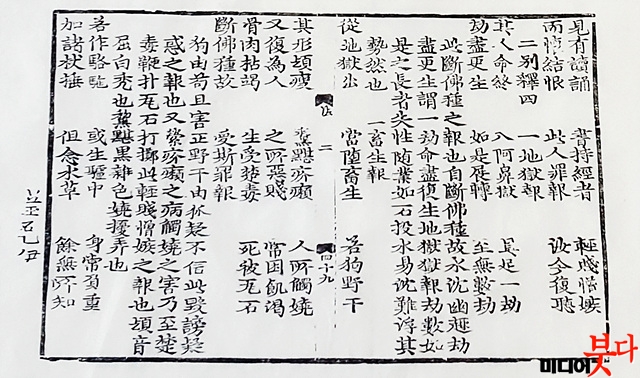 見有讀誦 書持經者 輕賤憎嫉
而懷結恨 此人罪報 汝今復聽
二別釋四 一地獄報
其人命終 入阿鼻獄 具足一劫
劫盡更生 如是展轉 至無數劫
此斷佛種之報也自斷佛種故永沈幽趣劫
盡更生謂一劫命盡復生地獄獄報劫數如
是之長者失性隨業如石投水易沈難浮其
勢然也 一畜生報
從地獄出 當墮畜生 若狗野干
二 四十九
其形頹瘦 黧黮疥癩 人所觸嬈
又復為人 之所惡賤 常困飢渴
骨肉枯竭 生受楚毒 死被瓦石
斷佛種故 受斯罪報
狗由苟且害正野干由狐疑不信此毀謗疑
惑之報也又縈疥癩之病觸嬈之害乃至楚
毒鞭打瓦石打擲此輕賤憎嫉之報也頹音
屈白禿也黧黮黑雜色嬈擾弄也
若作駱駝 或生驢中 身常負重
加諸杖捶 但念水草 餘無所知
石乙伊
미디어붓다